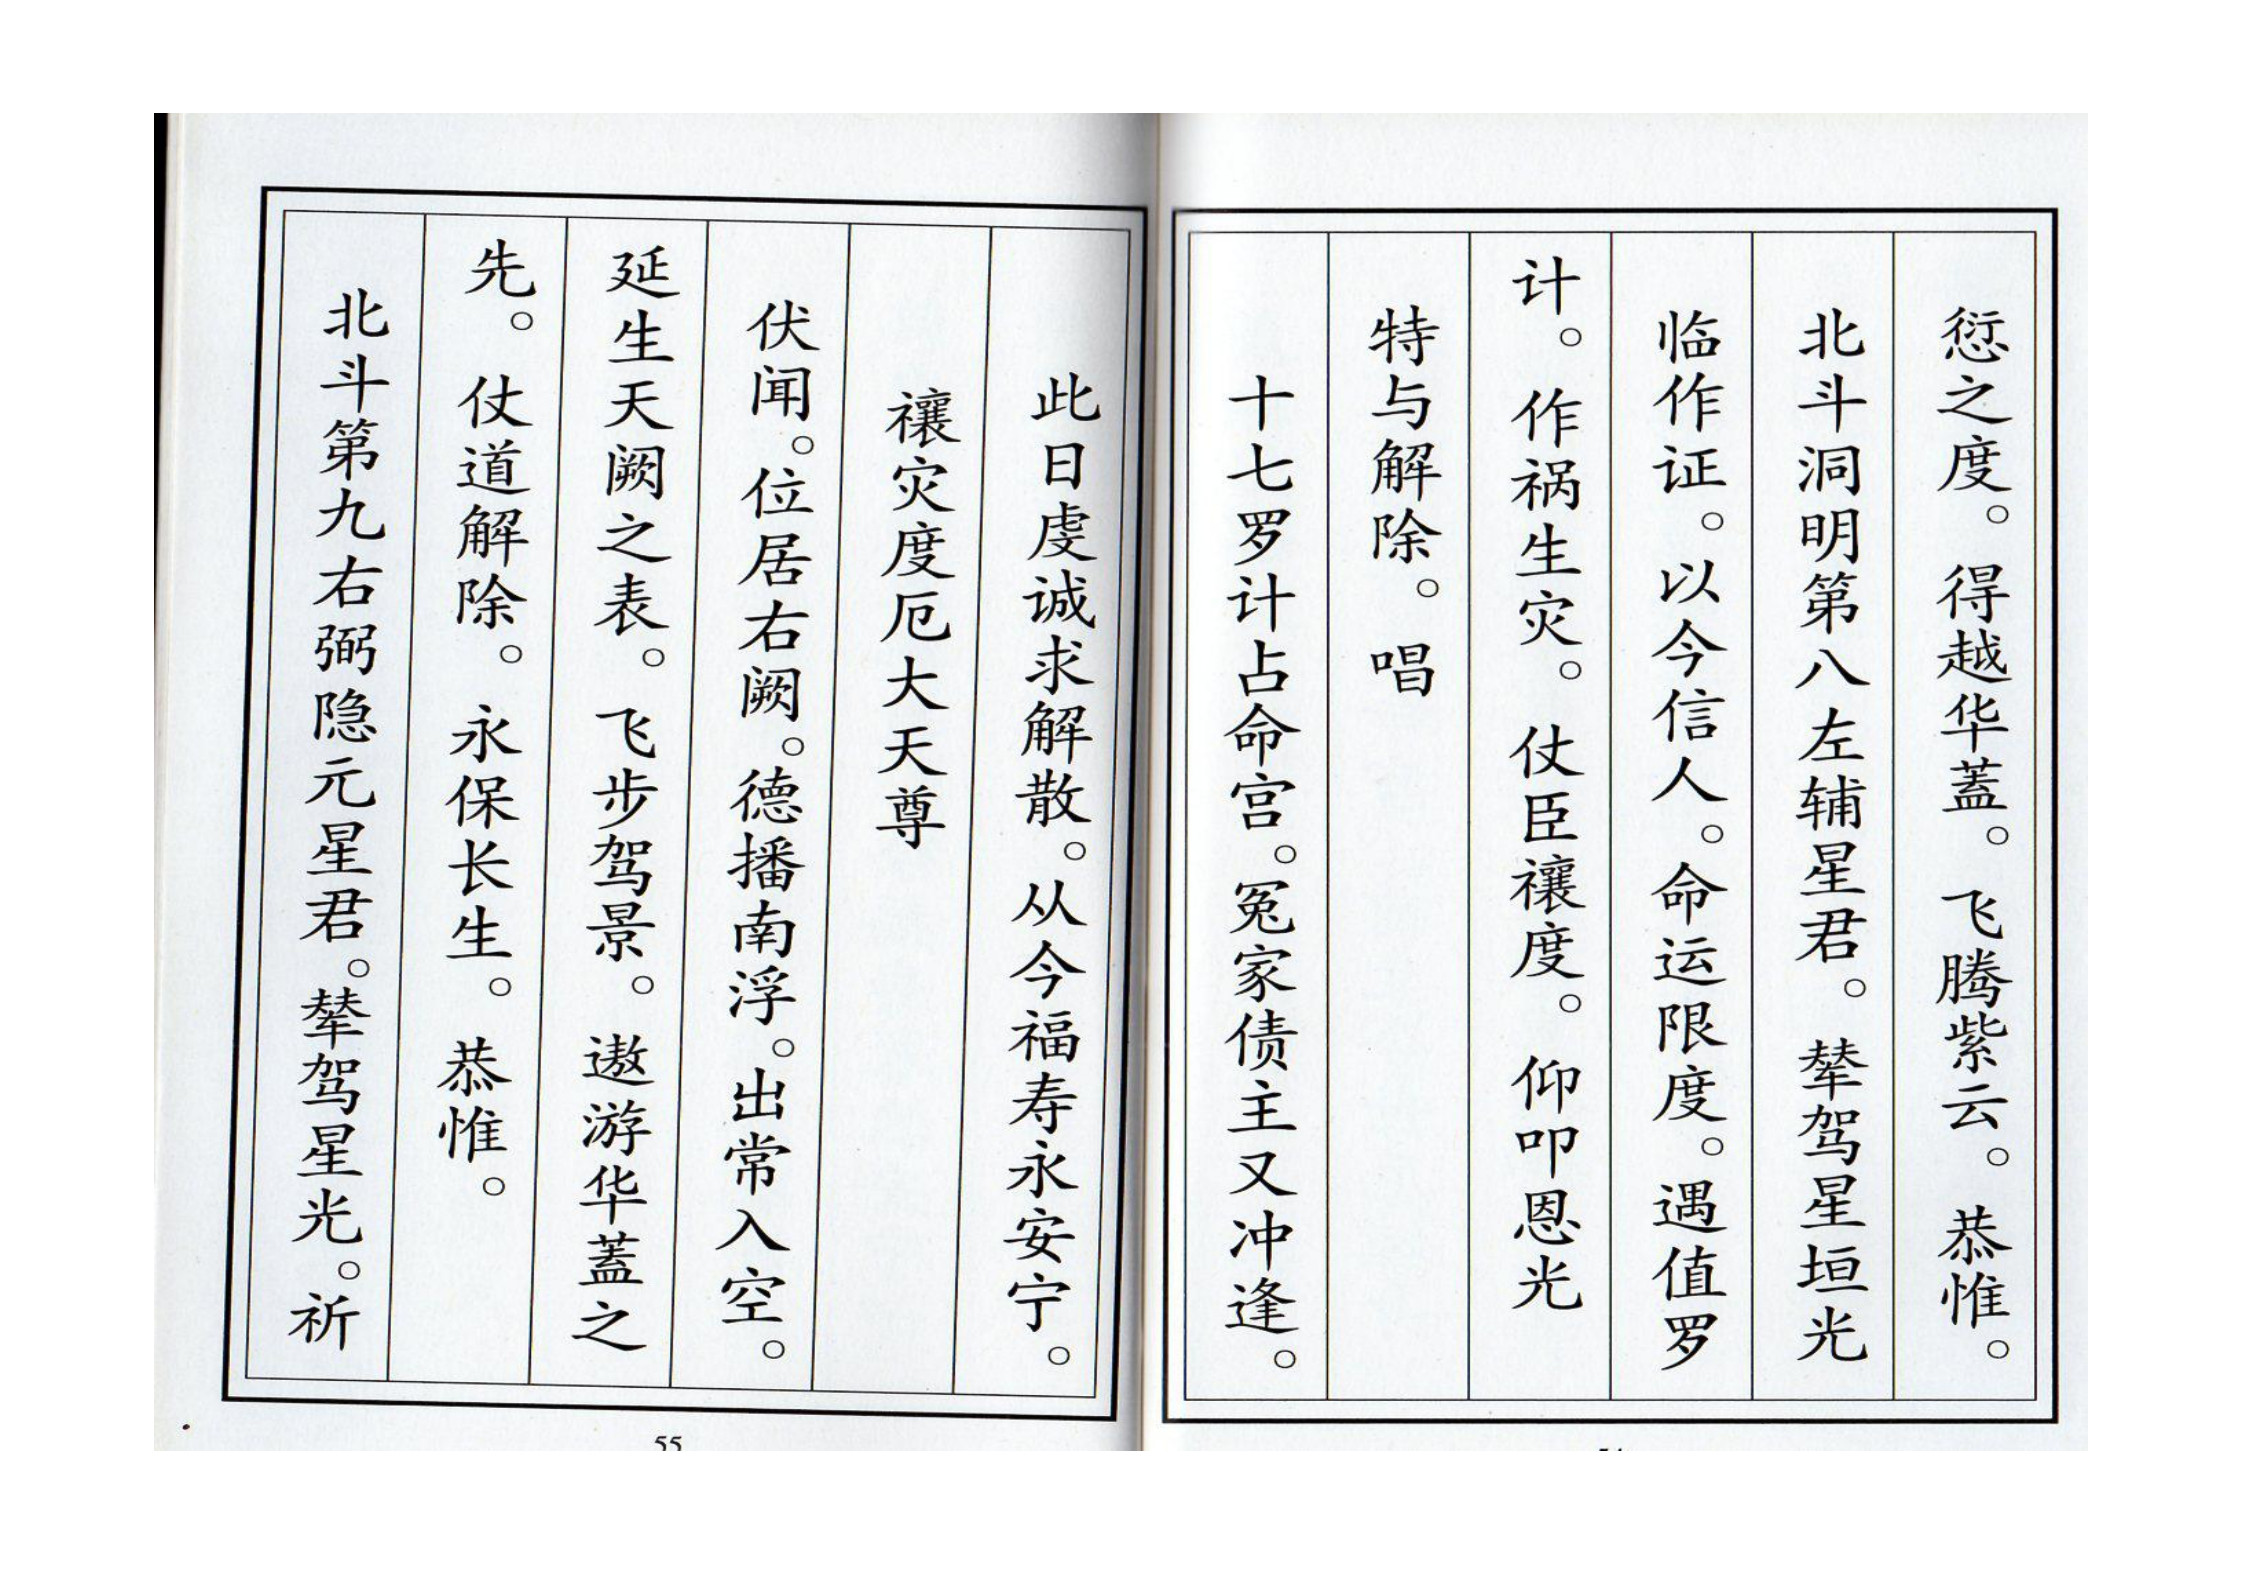 愆之度。得越华蓋。飞腾紫云。恭惟。
北斗洞明第八左辅星君。辇驾星垣光
临作证。以今信人。命运限度。遇值罗
计。作祸生灾。仗臣禳度。仰叩恩光
特与解除。唱
十七罗计占命宫。冤家债主又冲逢。
此日虔诚求解散。从今福寿永安宁。
禳灾度厄大天尊
伏闻。位居右阙。德播南浮。出常入空。
延生天阙之表。飞步驾景。遨游华蓋之
先。仗道解除。永保长生。恭惟。
北斗第九右弼隐元星君。辇驾星光。祈
55